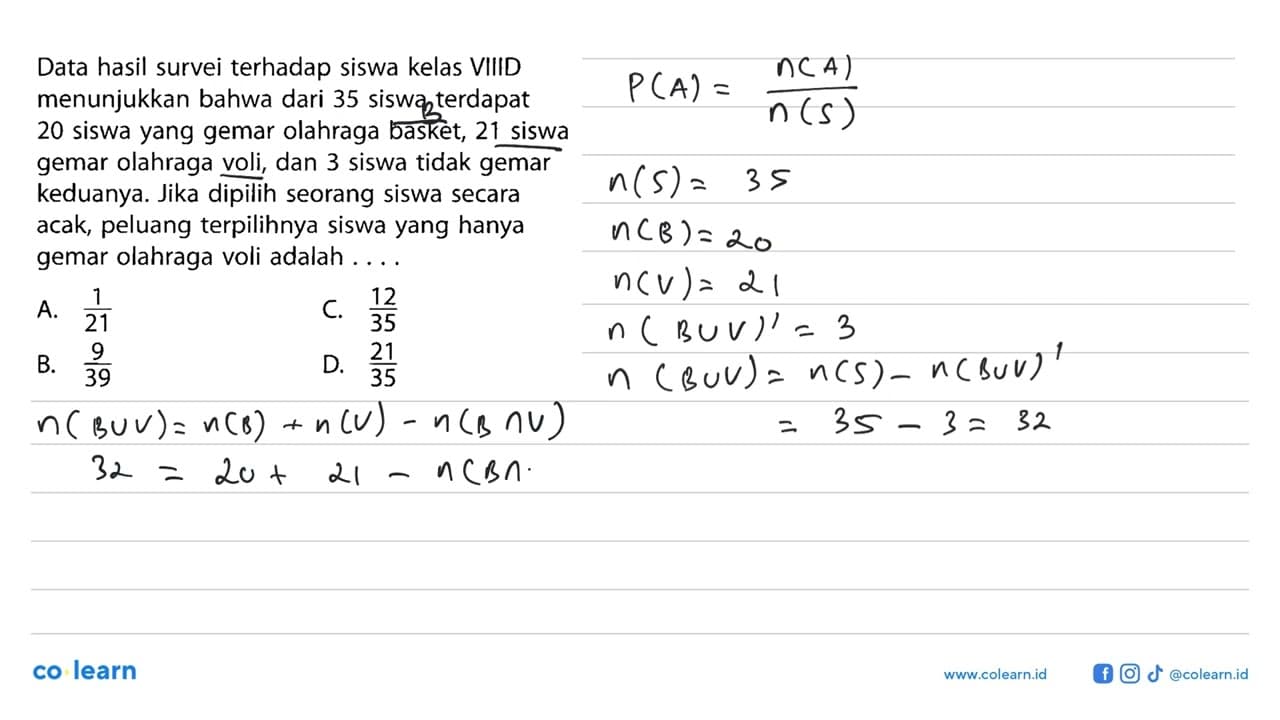 Data hasil survei terhadap siswa kelas VIIID
menunjukkan bahwa dari 35 siswa terdapat
B
20 siswa yang gemar olahraga basket, 21 siswa
gemar olahraga voli, dan 3 siswa tidak gemar
keduanya. Jika dipilih seorang siswa secara
acak, peluang terpilihnya siswa yang hanya
gemar olahraga voli adalah . . . .
A. 1/21
C. 12/35
B. 9/39
D. 21/35
P(A) = n(A)/n(S)
n(S) = 35
n(B) = 20
n(V) = 21
n(B∪V)' = 3
n(B∪V) = n(S) - n(B∪V)'
= 35 - 3 = 32
n(B∪V) = n(B) + n(V) - n(B∩V)
32 = 20 + 21 - n(B∩
co learn
www.colearn.id
@colearn.id